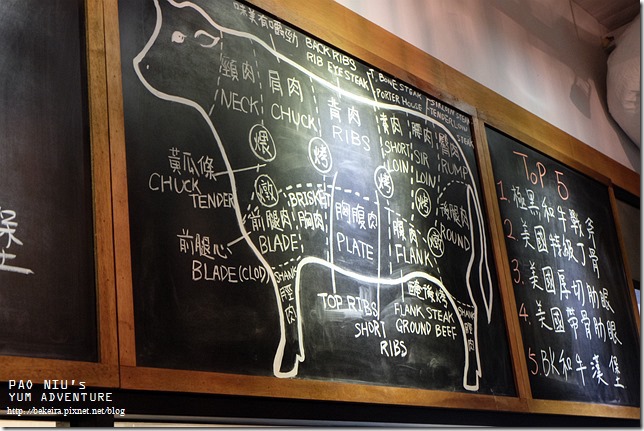 堡
味美有嚼勁
BACK RIBS
RIB EYE STEAK
T.BONE STEAK
PORTER HOUSE
SIRLOIN STEAK
TENDERLOIN
STEAK
頸肉
NECK
肩肉
CHUCK
背肉
RIBS
SHORT
LOIN
腰肉
SIR
LOIN
臀肉
RUMP
煨
烤
烤
烤
黃瓜條
CHUCK
TENDER
前腿肉
BLADE
BRISKET
胸肉
胸腹肉
PLATE
腹肉
FLANK
後腿肉
ROUND
前腿心
BLADE(CLOD)
SHANK
脛肉
SHANK
脛肉
TOP RIBS
SHORT
RIBS
醃後烤
FLANK STEAK
GROUND BEEF
TOP 5
1.極黑和牛戰斧
2.美國特級丁骨
3.美國厚切肋眼
4.美國帶骨肋眼
5.BK和牛漢堡
PAO NIU'S
YUM ADVENTURE
http://bekeira.pixnet.net/blog